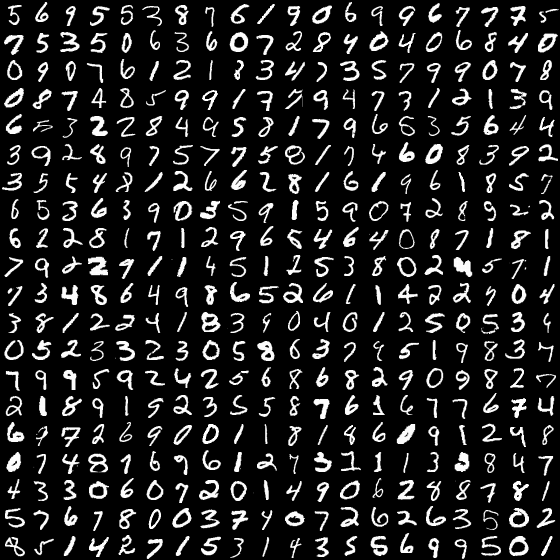 5 6 9 5 5 3 8 7 6 1 9 0 6 9 9 6 7 7 7 5
7 5 3 5 0 6 3 6 0 7 2 8 4 0 4 0 6 8 4 0
0 9 0 7 6 1 2 1 8 3 4 7 3 5 7 9 9 0 7 8
0 8 7 4 8 5 9 9 1 7 7 9 4 7 3 1 2 1 3 9
6 5 3 2 2 8 4 9 5 8 1 7 9 6 6 3 5 6 4 4
3 9 2 8 9 7 5 7 7 5 8 1 7 4 6 0 8 3 9 2
3 5 5 4 8 1 2 6 6 2 8 1 6 1 9 6 1 8 5 7
6 5 3 6 3 9 0 3 5 9 1 5 9 0 7 2 8 9 2 2
6 2 2 8 1 7 1 2 9 6 5 4 6 4 0 8 7 1 8 1
7 9 2 2 9 1 1 4 5 1 2 5 3 8 0 2 4 5 7 1
7 3 4 8 6 4 9 8 6 5 2 6 1 1 4 2 2 9 0 4
3 8 1 2 2 4 1 8 3 9 0 4 0 1 2 5 0 5 3 9
0 5 2 3 3 2 3 0 5 8 6 3 7 9 5 1 9 8 3 7
7 9 9 5 9 2 4 2 5 6 8 6 8 2 9 0 9 8 2 7
2 1 8 9 1 9 2 3 5 5 8 7 6 1 6 7 7 6 7 4
6 9 7 2 6 9 0 0 1 1 8 1 8 6 0 9 1 2 4 8
0 7 4 8 1 6 9 6 1 2 7 3 1 1 1 3 3 8 4 7
4 3 3 0 6 0 7 2 0 1 4 9 0 6 2 8 8 7 8 1
5 7 6 7 8 0 0 3 7 4 0 7 2 6 2 6 3 5 0 2
8 5 1 4 2 7 1 5 3 1 4 3 5 5 6 9 9 5 0 1